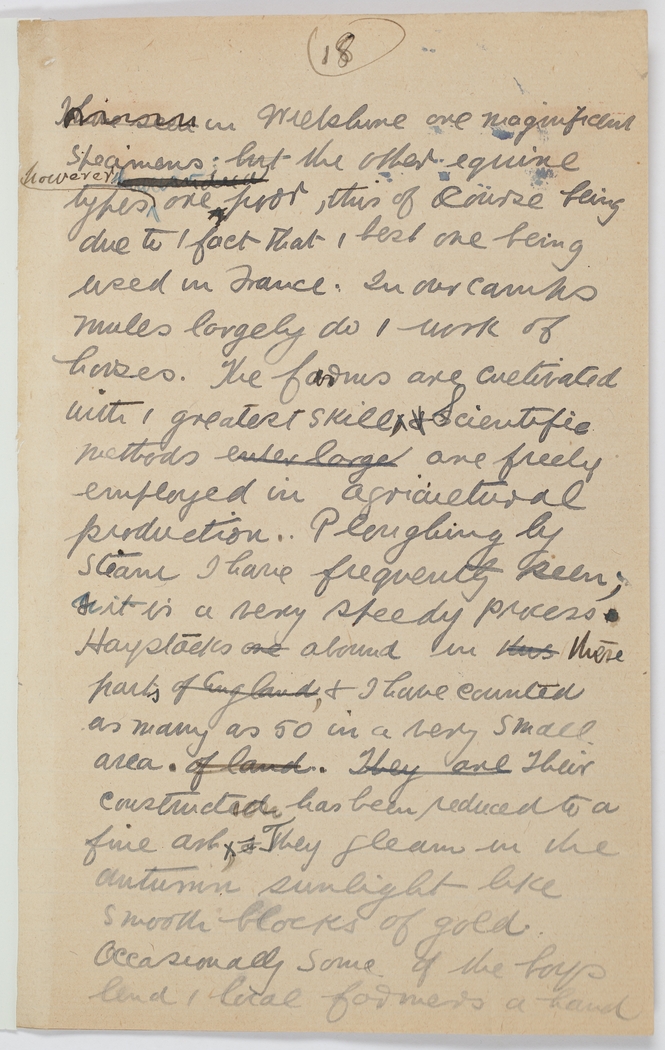 18
in Wiltshire are magnificent
specimens. but the other equine
however,
types are poor, this of course being
due to / fact that / best are being
used in France. In our camps
mules largely do / work of
horses. The farms are cultivated
with / greatest skill, & Scientific
methods enter large are freely
employed in agricultural
production.. Ploughing by
steam I have frequently seen;
it is a very speedy process.
Haystacks are abound in this these
parts of England, & I have counted
as many as 50 in a very small
area. of land. They are Their
construction, has been reduced to a
fine art, & They gleam in the
autumn sunlight like
smooth blocks of gold.
Occasionally some of the boys
lend / local farmers a hand